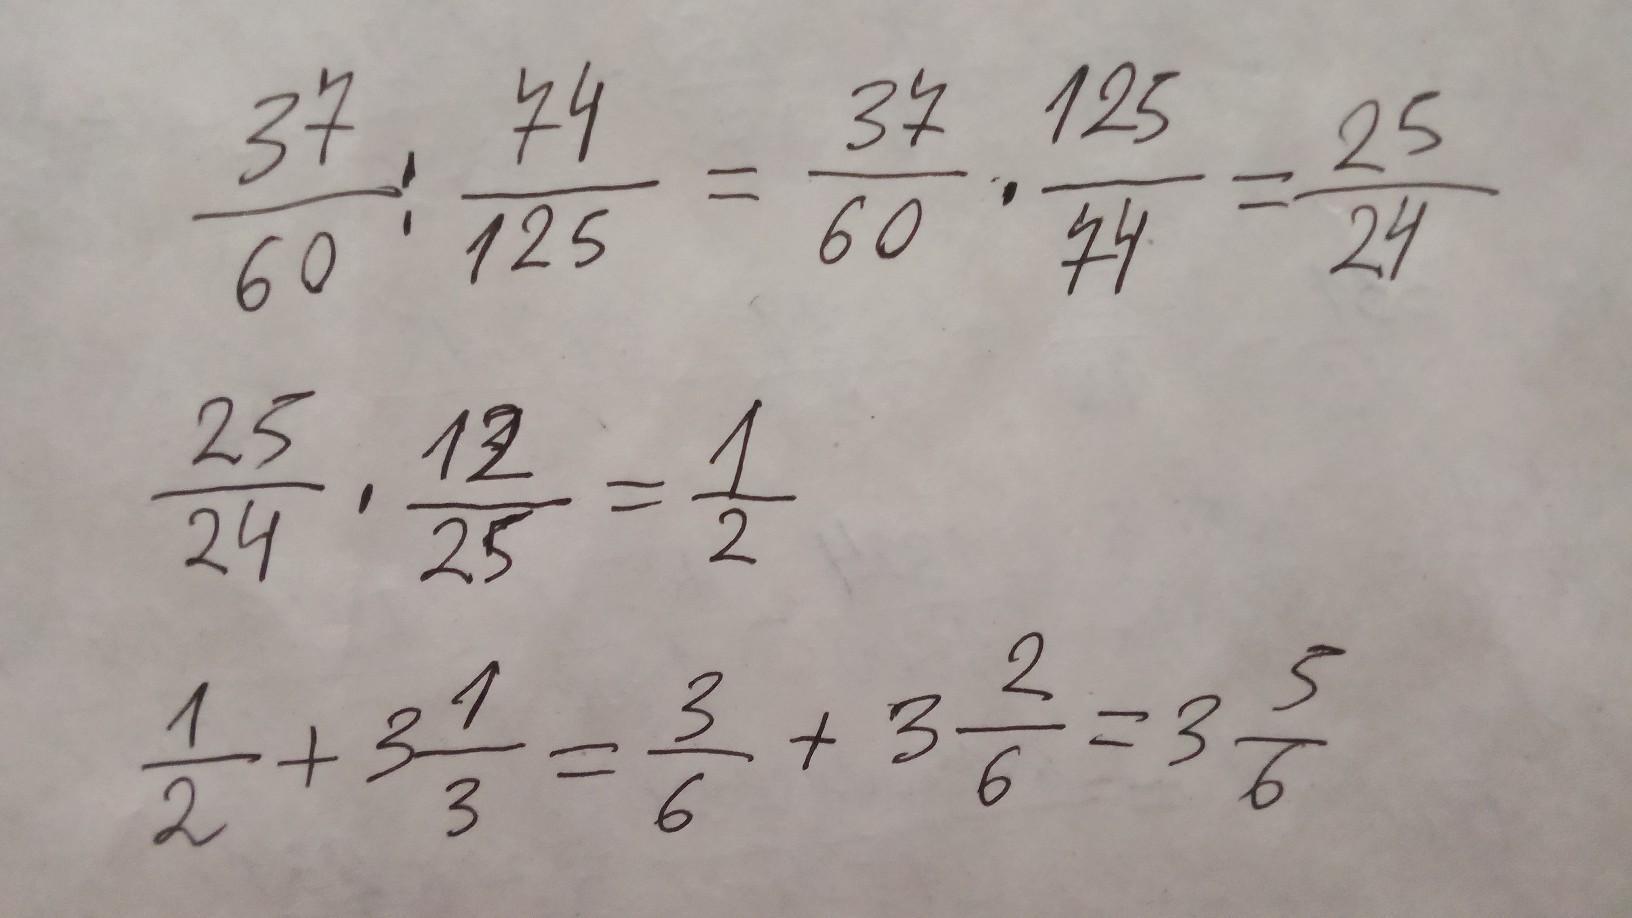 37/60 : 74/125 = 37/60 · 125/74 = 25/24
25/24 · 12/25 = 1/2
1/2 + 3 1/3 = 3/6 + 3 2/6 = 3 5/6